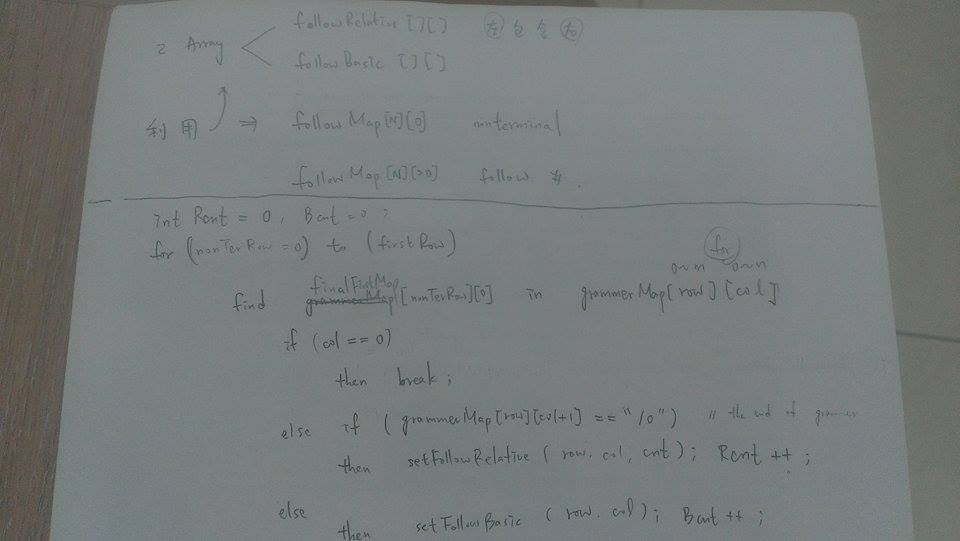 2 Array < followRelative [ ][ ] 左包含右
followBasic [ ][ ]
利用 ⇒ followMap[N][0] nonterminal
followMap[N][>0] follow #.
int Rcnt = 0, Bcnt = 0 ;
for (nonTerRow = 0) to (firstRow) for
0~n 0~n
finalFirstMap
find grammerMap[nonTerRow][0] in grammerMap[row][col]
if (col == 0)
then break ;
else if ( grammerMap[row][col+1] == "/0") // the end of grammer
then setFollowRelative ( row, col, cnt ); Rcnt ++ ;
else
then setFollowBasic ( row, col); Bcnt ++ ;